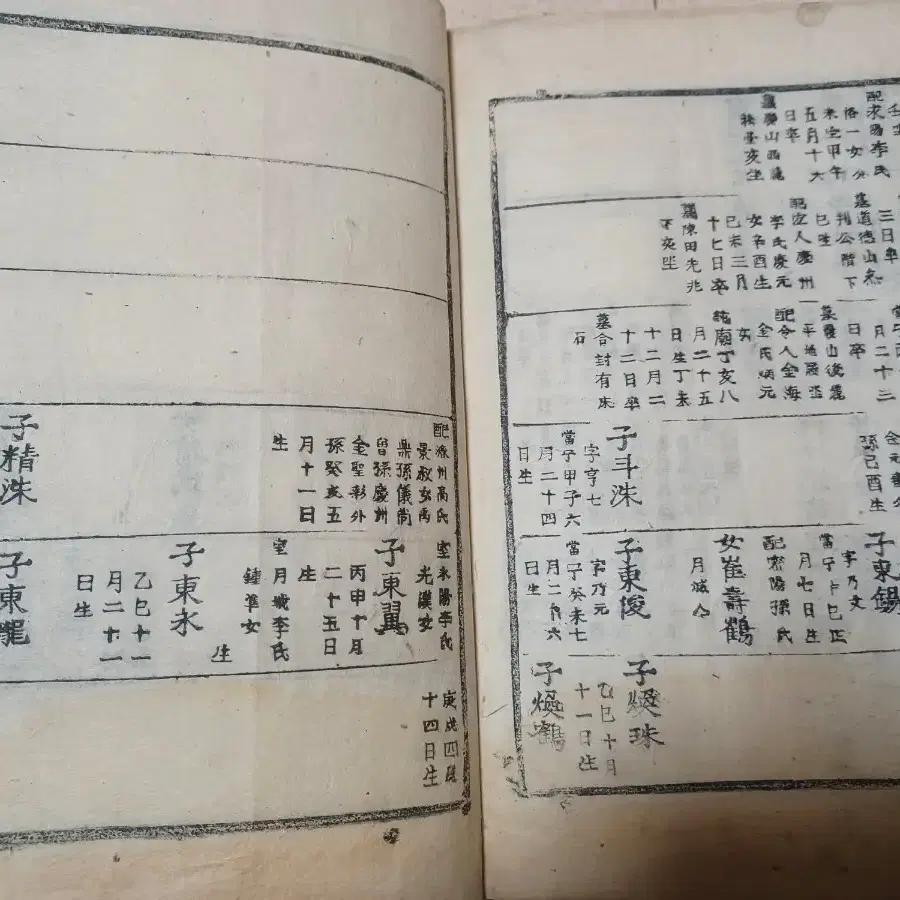 李氏
五月十六
日卒
亥坐
三日卒
墓道德山
公階下
巳坐
配宜人慶州
李氏慶元
女辛酉生
己未三月
十七日卒
墓陳田先兆
下亥坐
月二十三
日卒
配令人金海
金氏炳元
女
純廟丁亥八
月二十五
日生丁未
十二月二
十二日卒
墓合封有床
石
孫己酉生
子斗洙
字亨七
當宁甲子六
月二十四
日生
子東錫
字乃文
月七日生
配密陽孫氏
女崔壽鶴
月城人
子東俊
字乃元
當宁癸未七
月二十六
日生
子煥珠
乙巳十月
十一日生
子煥鶴
配濟州高氏
景叔女禹
鼎孫儀尚
曾孫慶州
金聖彰外
孫癸亥五
月十一日
生
子精洙
室永陽李氏
光漢女
子東翼
丙申十月
二十五日
生
室月城李氏
鍾準女
子東永
生
乙巳十一
月二十一
日生
子東龍
庚戌四月
十四日生